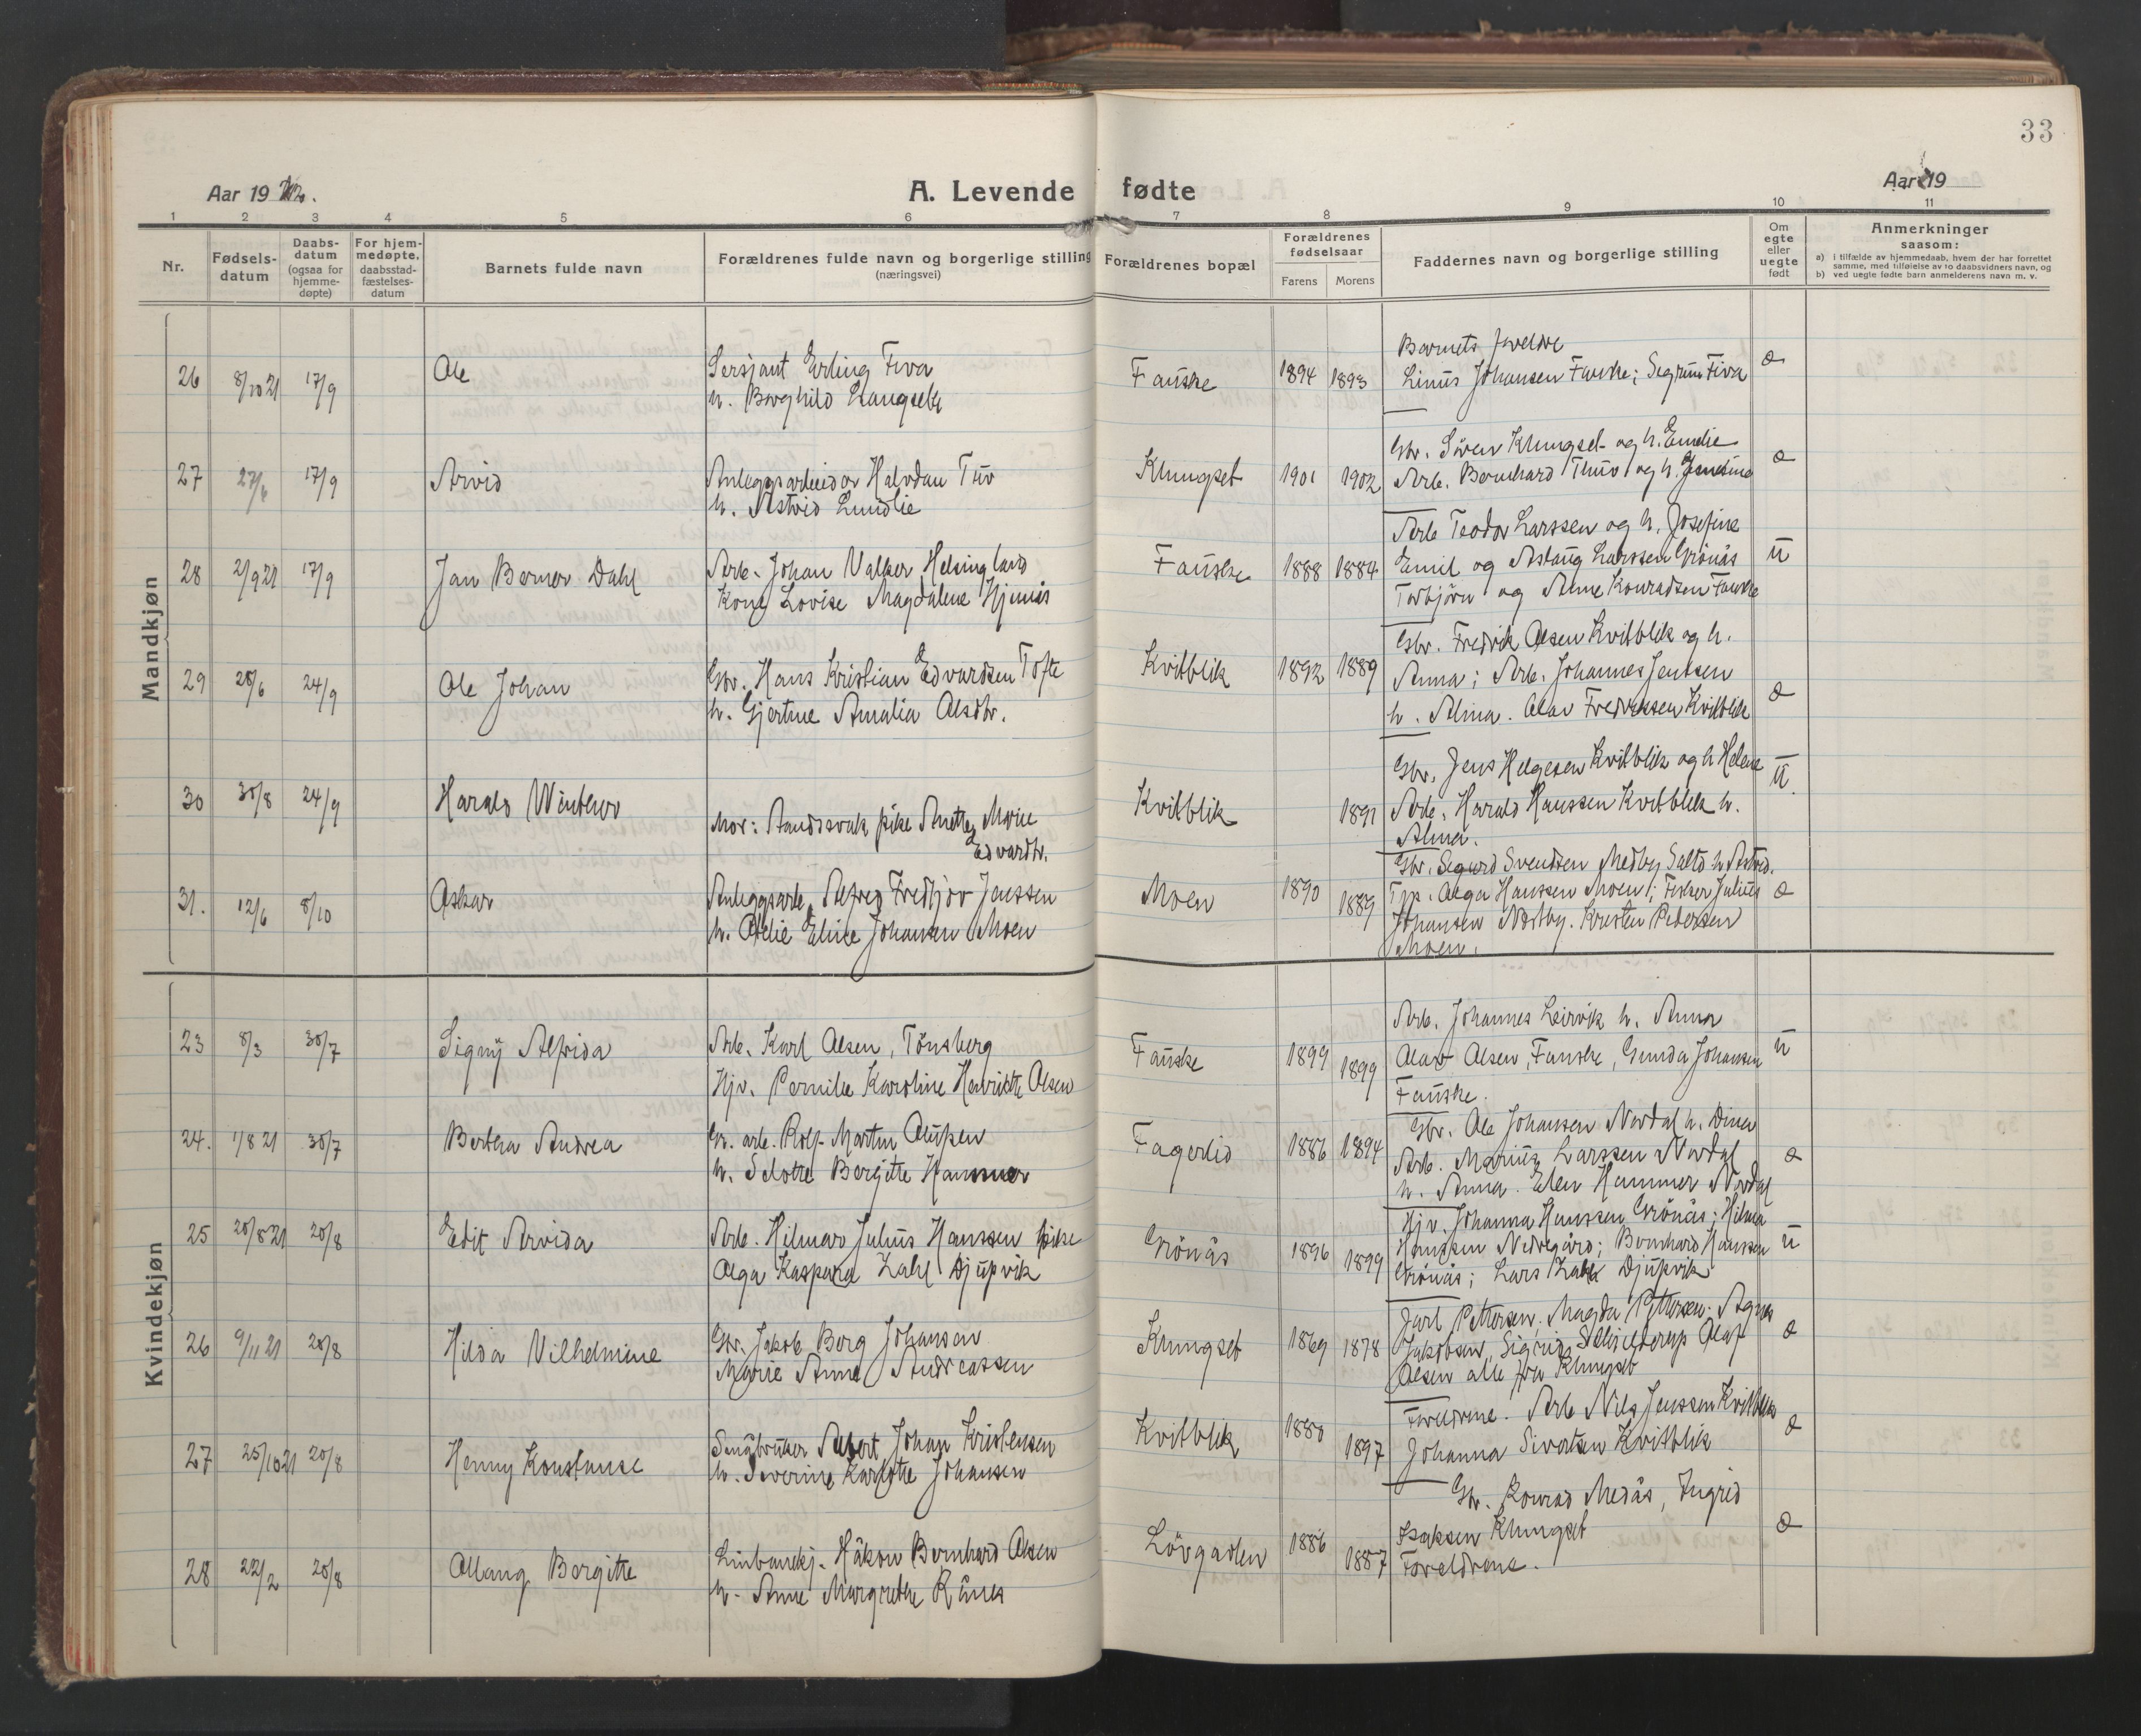 33
Aar 1922.
A. Levende fødte
Aar 19
1 2 3 4 5 6 7 8 9 10 11
Nr.
Fødsels-
datum
Daabs-
datum
(ogsaa for
hjemme-
døpte)
For hjem-
medøpte.
daabsstad-
fæstelses-
datum
Barnets fulde navn
Forældrenes fulde navn og borgerlige stilling
(næringsvei)
Forældrenes bopæl
Forældrenes
fødselsaar
Farens Morens
Faddernes navn og borgerlige stilling
Om
egte
eller
uegte
født
Anmerkninger
saasom:
a) i tilfælde av hjemmedaab, hvem der har forrettet
samme, med tilføielse av to daabsvidners navn, og
b) ved uegte fødte barn anmelderens navn m. v.
Mandkjøn
26 8/10 21 17/9 Ole
Sersjant Erling Fiva
h. Borghild
Fauske 1894 1893
Barnets foreldre
Linus Johansen Fauske; Sigrun Fiva
27 27/6 17/9 Arvid
Anleggsarbeider Halvdan Tuv
h. Astrid Lundlie
Klungset 1901 1902
Gbr. Sören Klungset og h. Emelie
Arb. Bernhard Thuv og h. Jensine
28 2/9 21 17/9 Jan Berner Dahl
Arb. Johan Valker Helsingland
Kone Lovise Magdalene Hjemås
Fauske 1888 1884 u
Arb Teodor Larssen og h. Josefine
Emil og Aslaug Larssen Grönås
Torbjörn og Anne Konradsen Fauske
29 28/6 24/9 Ole Johan
Gbr. Hans Kristian Edvardsen Tofte
h. Gjertine Amalia Olsdtr.
Kvitblik 1892 1889
Gbr. Fredrik Olsen Kvitblik og h.
Anna; Arb. Johannes Jentsen
h. Alma. Olav Fredriksen Kvitblik
30 30/8 24/9 Harald Winther
Mor: Aandssvak pike Anette Marie
Edvardtr.
Kvitblik 1891 u.
Gbr. Jens Helgesen Kvitblik og h Helene
Arb. Harald Hanssen Kvitblik h.
Alma.
31. 12/6 8/10 Oskar
Anleggsarb. Alfred Fredtjov Jenssen
h. Otelie Eline Johansen Moen
Moen 1890 1889
Gbr. Sigurd Svendsen Medby Saltd h Astrid.
Tjp. Olga Hanssen Moen; Fisker Julius
Johansen Nordby. Kristen Pedersen
Moen.
Kvindekjøn
23 8/3 30/7 Signy Alfrida
Arb. Karl Olsen, Tönsberg
Hjv. Pernille Karoline Henriette Olsen
Fauske 1899 1899 u
Arb. Johannes Leirvik h. Anna
Olav Olsen, Fauske, Gunda Johansen
Fauske.
24. 1/8 21 30/7 Bertha Andrea
Gr. arb. Rolf Martin Olufsen
h. Selotte Bergitte Hammer
Fagerlid 1886 1894
Gbr. Ole Johansen Nordal h. Dina
Arb. Marius Larssen Nordal
h. Anna. Elen Hammer Nordal
25 20/8 21 20/8 Edit Arvida
Arb. Hilmar Julius Hanssen pike
Olga Kaspara Zahl Djupvik
Grönås 1896 1899 u
Hjv. Johanna Hanssen Grönås; Hilma
Hanssen Nedregård; Bernhard Hanssen
Grönås; Lars Zahl Djupvik
26 9/11 21 20/8 Hilda Vilhelmine
Gbr. Jakob Borg Johansen
Marie Anna Andreassen
Klungset 1869 1878
Jarl Pettersen, Magda Pettersen; Agnes
Jakobsen, Sigrid Schjelderup Olaf
Olsen alle fra Klungset
27 25/10 21 20/8 Henny Konstanse
Småbruker Albert Johan Kristensen
h. Severine Karlotte Johansen
Kvitblik 1880 1897
Foreldrene. Arb Nils Jenssen Kvitblik
Johanna Sivertsen Kvitblik
28 22/2 20/8 Ollaug Bergitte
Linbanekj. Håkon Bernhard Olsen
h. Anne Margrethe Rånes
Lövgavlen 1886 1887
Gbr. Konrad Medås, Ingrid
Isaksen Klungset
Foreldrene.